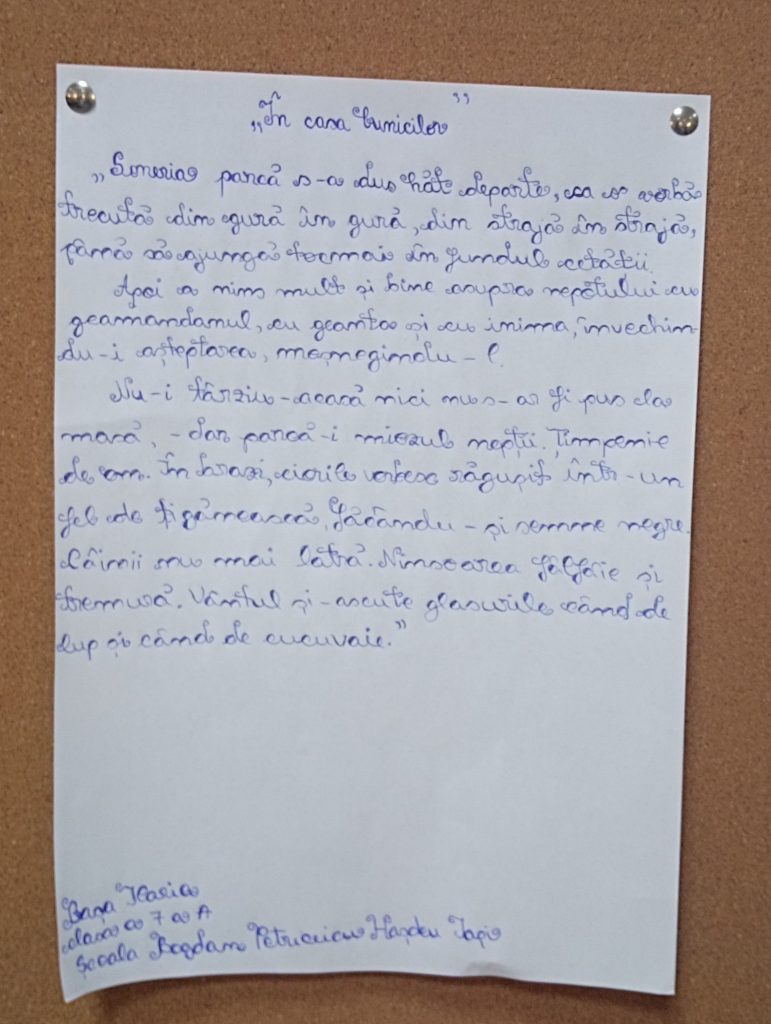 „În casa bunicilor”
„Soneria parcă s-a dus hăt departe, ca o vorbă
trecută din gură în gură, din strajă în strajă,
până să ajungă tocmai în fundul cetății.
Apoi a nins mult și bine asupra nepotului cu
geamandanul, cu geanta și cu inima, învechin-
du-i așteptarea, meșmegindu-l.
Nu-i târziu-acasă nici nu s-ar fi pus la
masă, - dar parcă-i miezul nopții. Țimpenie
de om. În brazi, ciorile vorbesc răgușit într-un
fel de țigănească, făcându-și semne negre.
Câinii nu mai latră. Ninsoarea fâlfâie și
tremură. Vântul și-ascute glasurile când de
lup și când de cucuvaie.”
Bașa Ilaria
clasa a 7 a A
Școala Bogdan Petriceicu Hașdeu Iași